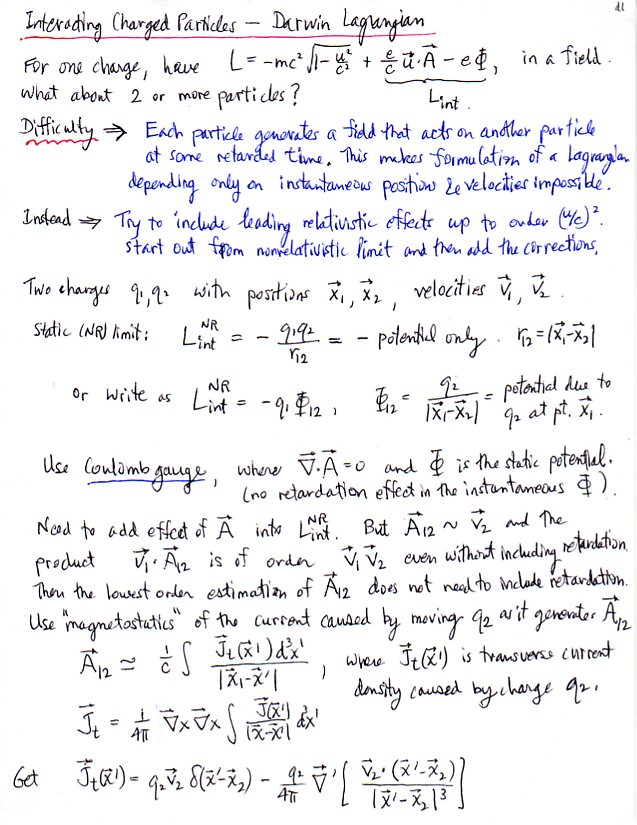 d1
Interacting Charged Particles — Darwin Lagrangian
For one charge, have L = -mc² √(1 - u²/c²) + e/c u⃗·A⃗ - eΦ, in a field.
What about 2 or more particles? L_int.
Difficulty ⇒ Each particle generates a field that acts on another particle
at some retarded time. This makes formulation of a Lagrangian
depending only on instantaneous positions & velocities impossible.
Instead ⇒ Try to include leading relativistic effects up to order (u/c)².
Start out from nonrelativistic limit and then add the corrections.
Two charges q₁, q₂ with positions x⃗₁, x⃗₂, velocities v⃗₁, v⃗₂.
Static (NR) limit: L_int^NR = - q₁q₂/r₁₂ = - potential only. r₁₂ = |x⃗₁-x⃗₂|
or write as L_int^NR = -q₁Φ₁₂, Φ₁₂ = q₂/|x⃗₁-x⃗₂| = potential due to
q₂ at pt. x⃗₁.
Use Coulomb gauge, where ∇⃗·A⃗ = 0 and Φ is the static potential.
(no retardation effect in the instantaneous Φ).
Need to add effect of A⃗ into L_int^NR. But A⃗₁₂ ~ v⃗₂ and the
product v⃗₁·A⃗₁₂ is of order v⃗₁ v⃗₂ even without including retardation.
Then the lowest order estimation of A⃗₁₂ does not need to include retardation.
Use "magnetostatics" of the current caused by moving q₂ as it generates A⃗₁₂
A⃗₁₂ ≃ 1/c ∫ J⃗_t(x⃗')d³x'/|x⃗₁-x⃗'|, where J⃗_t(x⃗') is transverse current
density caused by charge q₂.
J⃗_t = 1/4π ∇⃗×∇⃗× ∫ J⃗(x⃗')/|x⃗-x⃗'| d³x'
Get J⃗_t(x⃗') = q₂v⃗₂ δ(x⃗'-x⃗₂) - q₂/4π ∇⃗' [ v⃗₂·(x⃗'-x⃗₂)/|x⃗'-x⃗₂|³ ]